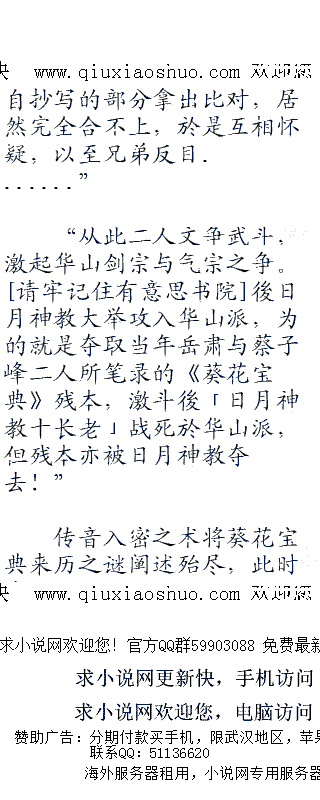 快 www.qiuxiaoshuo.com 欢迎您
自抄写的部分拿出比对，居
然完全合不上，於是互相怀
疑，以至兄弟反目.
......”
“从此二人文争武斗，
激起华山剑宗与气宗之争。
[请牢记住有意思书院]後日
月神教大举攻入华山派，为
的就是夺取当年岳肃与蔡子
峰二人所笔录的《葵花宝
典》残本，激斗後「日月神
教十长老」战死於华山派，
但残本亦被日月神教夺
去！”
传音入密之术将葵花宝
典来历之谜阐述殆尽，此时
www.qiuxiaoshuo.com 欢迎您
求小说网欢迎您！官方QQ群59903088 免费最新
求小说网更新快，手机访问
求小说网欢迎您，电脑访问
赞助广告：分期付款买手机，限武汉地区，苹果
联系QQ：51136620
海外服务器租用，小说网专用服务器